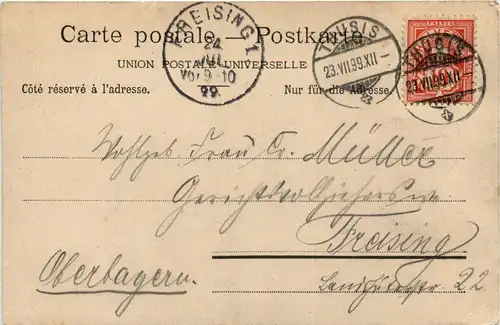 Carte postale — Postkarte
UNION POSTALE UNIVERSELLE
Côté réservé à l'adresse. Nur für die Adresse.
FREISING 1
24
JUL
Vor 9-10
99.
THUSIS
23.VII.99.XII
THUSIS
23.VII.99.XII
Wohlgeb. Frau Cr. Müller
Gerichtsvollziehers
Freising
Oberbayern.
Landshuterstr 22